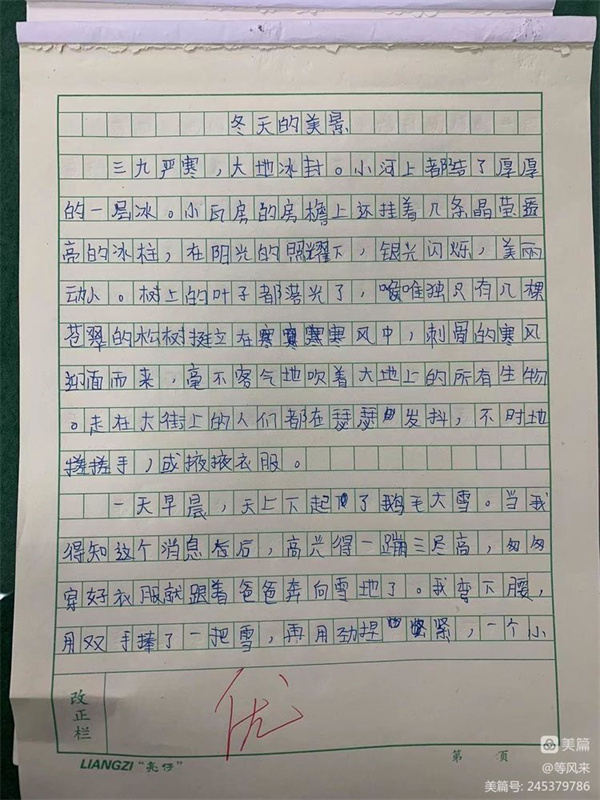 冬天的美景
三九严寒，大地冰封。小河上都结了厚厚
的一层冰。小瓦房的房檐上还挂着几条晶莹透
亮的冰柱，在阳光的照耀下，银光闪烁，美丽
动人。树上的叶子都落光了，唯独只有几棵
苍翠的松树挺立在寒风中，刺骨的寒风
迎面而来，毫不客气地吹着大地上的所有生物
。走在大街上的人们都在瑟瑟发抖，不时地
搓搓手，或掖掖衣服。
一天早晨，天上下起了鹅毛大雪。当我
得知这个消息后，高兴得一蹦三尺高，匆匆
穿好衣服就跟着爸爸奔向雪地了。我弯下腰，
用双手捧了一把雪，再用劲捏紧，一个小
改正栏
优
LIANGZI "亮仔"
第 页
美篇
@等风来
美篇号: 245379786